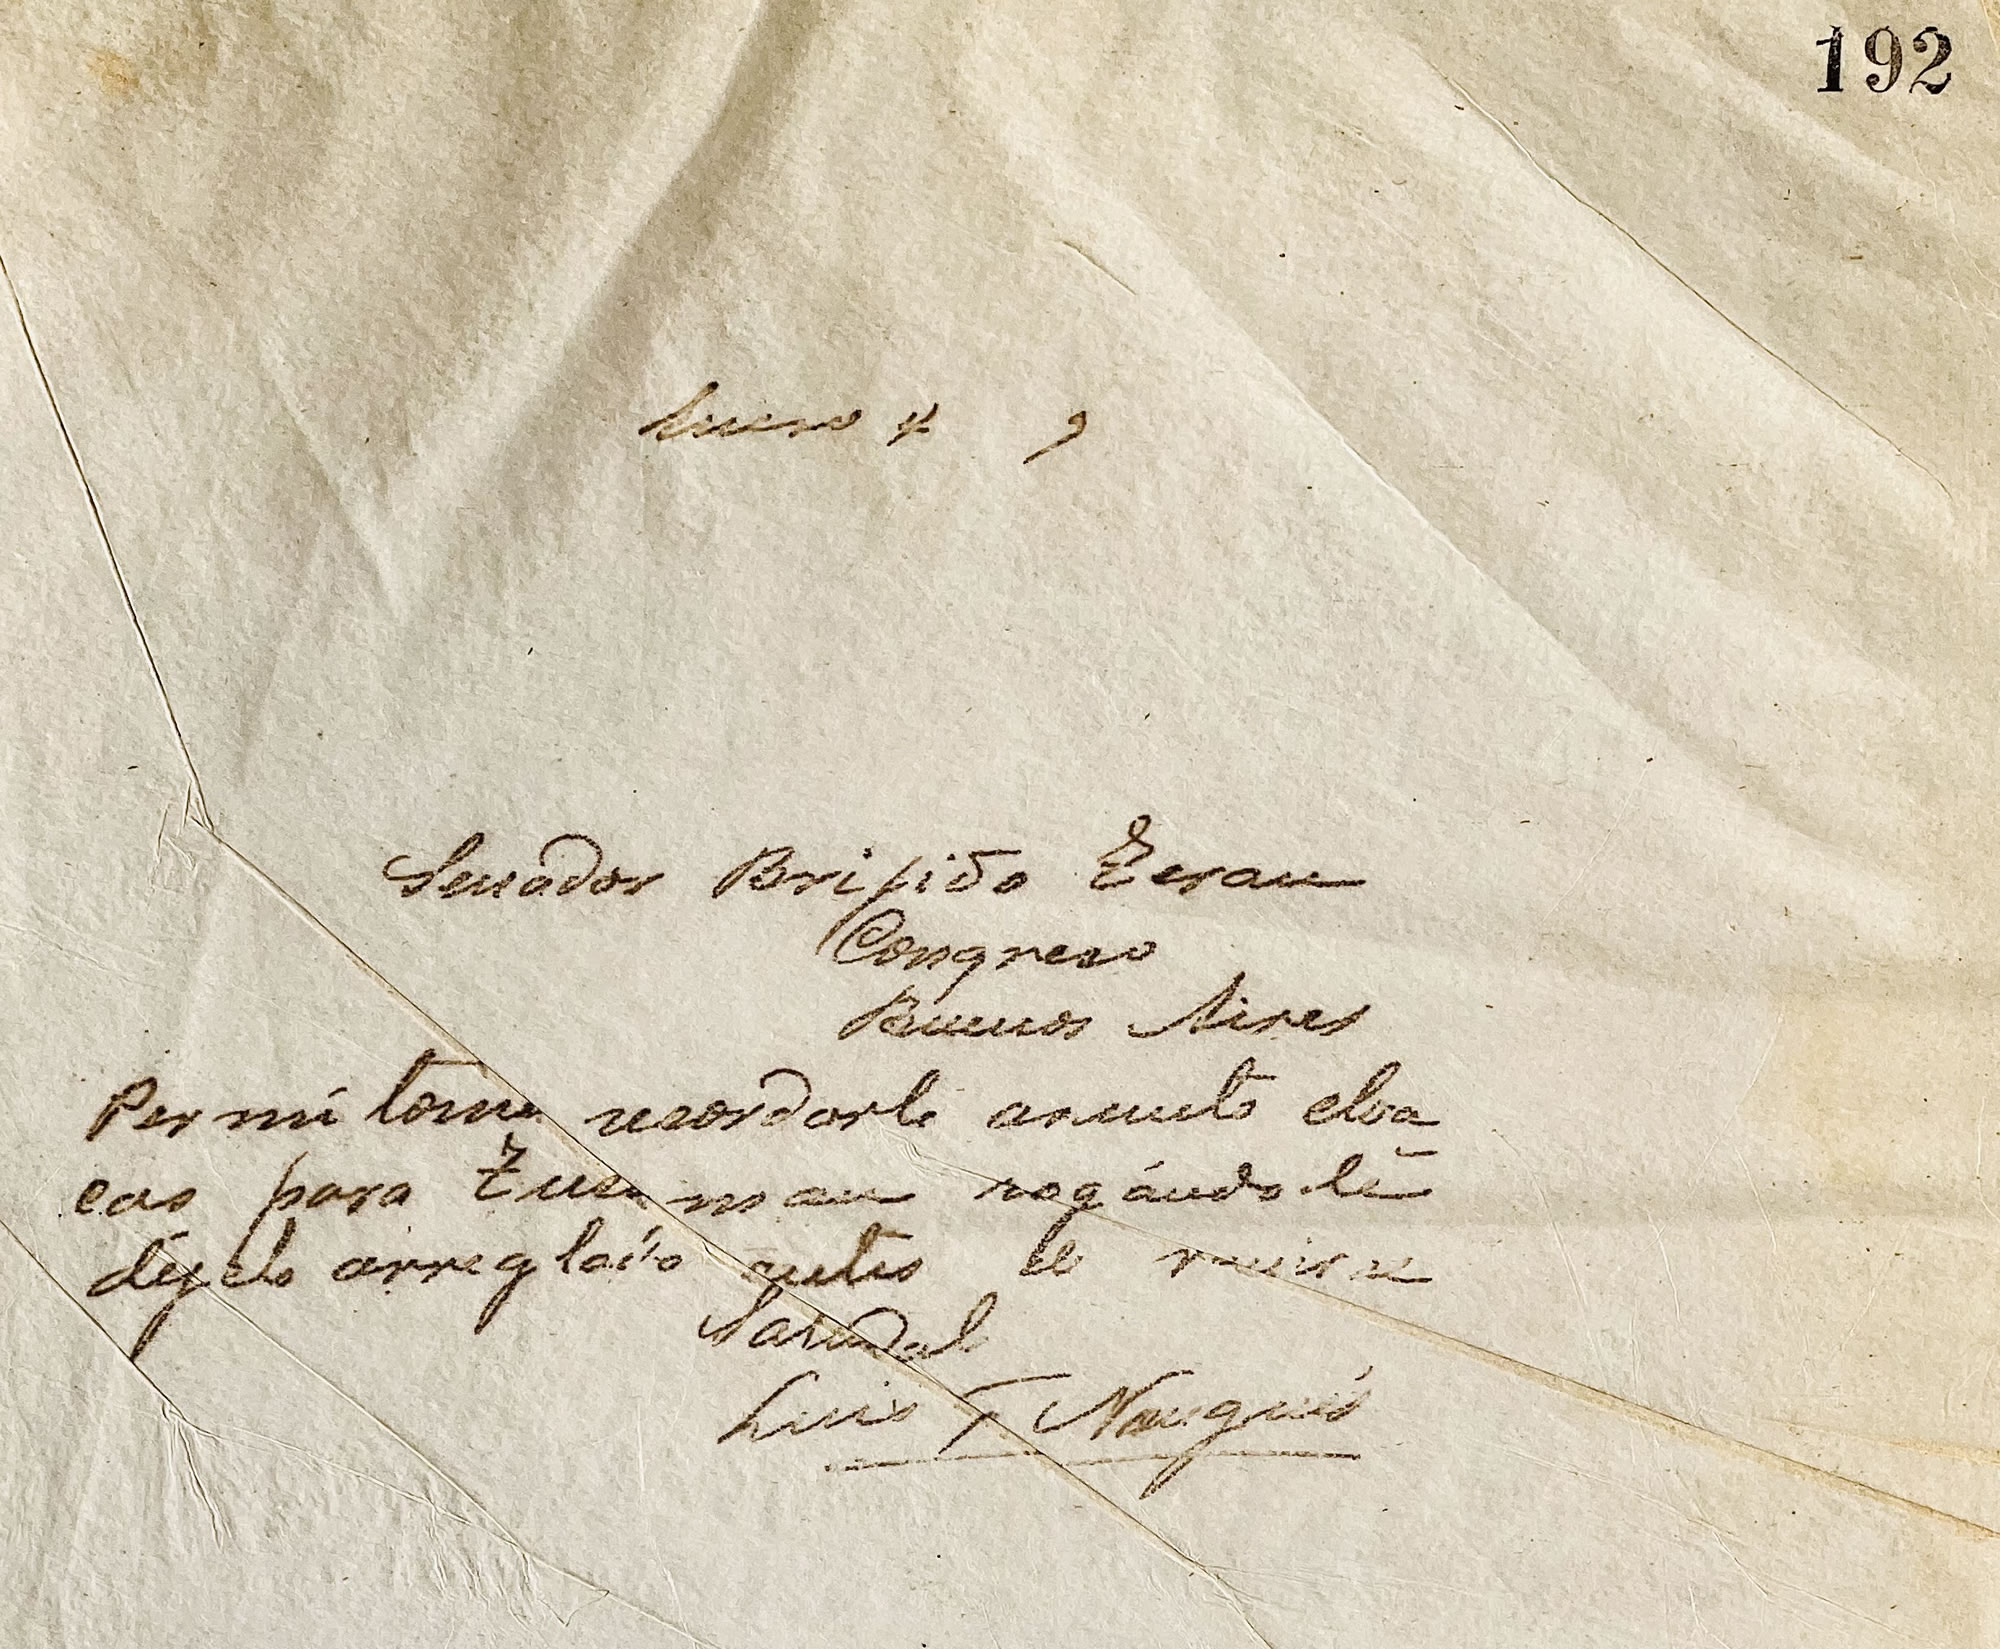 192
Enero 4 9
Senador Brijido Teran
Congreso
Buenos Aires
Permitome recordarle asunto cloa
cas para Tucuman rogándole
déjelo arreglado antes de venirse
Saludal
Luis F Nougués